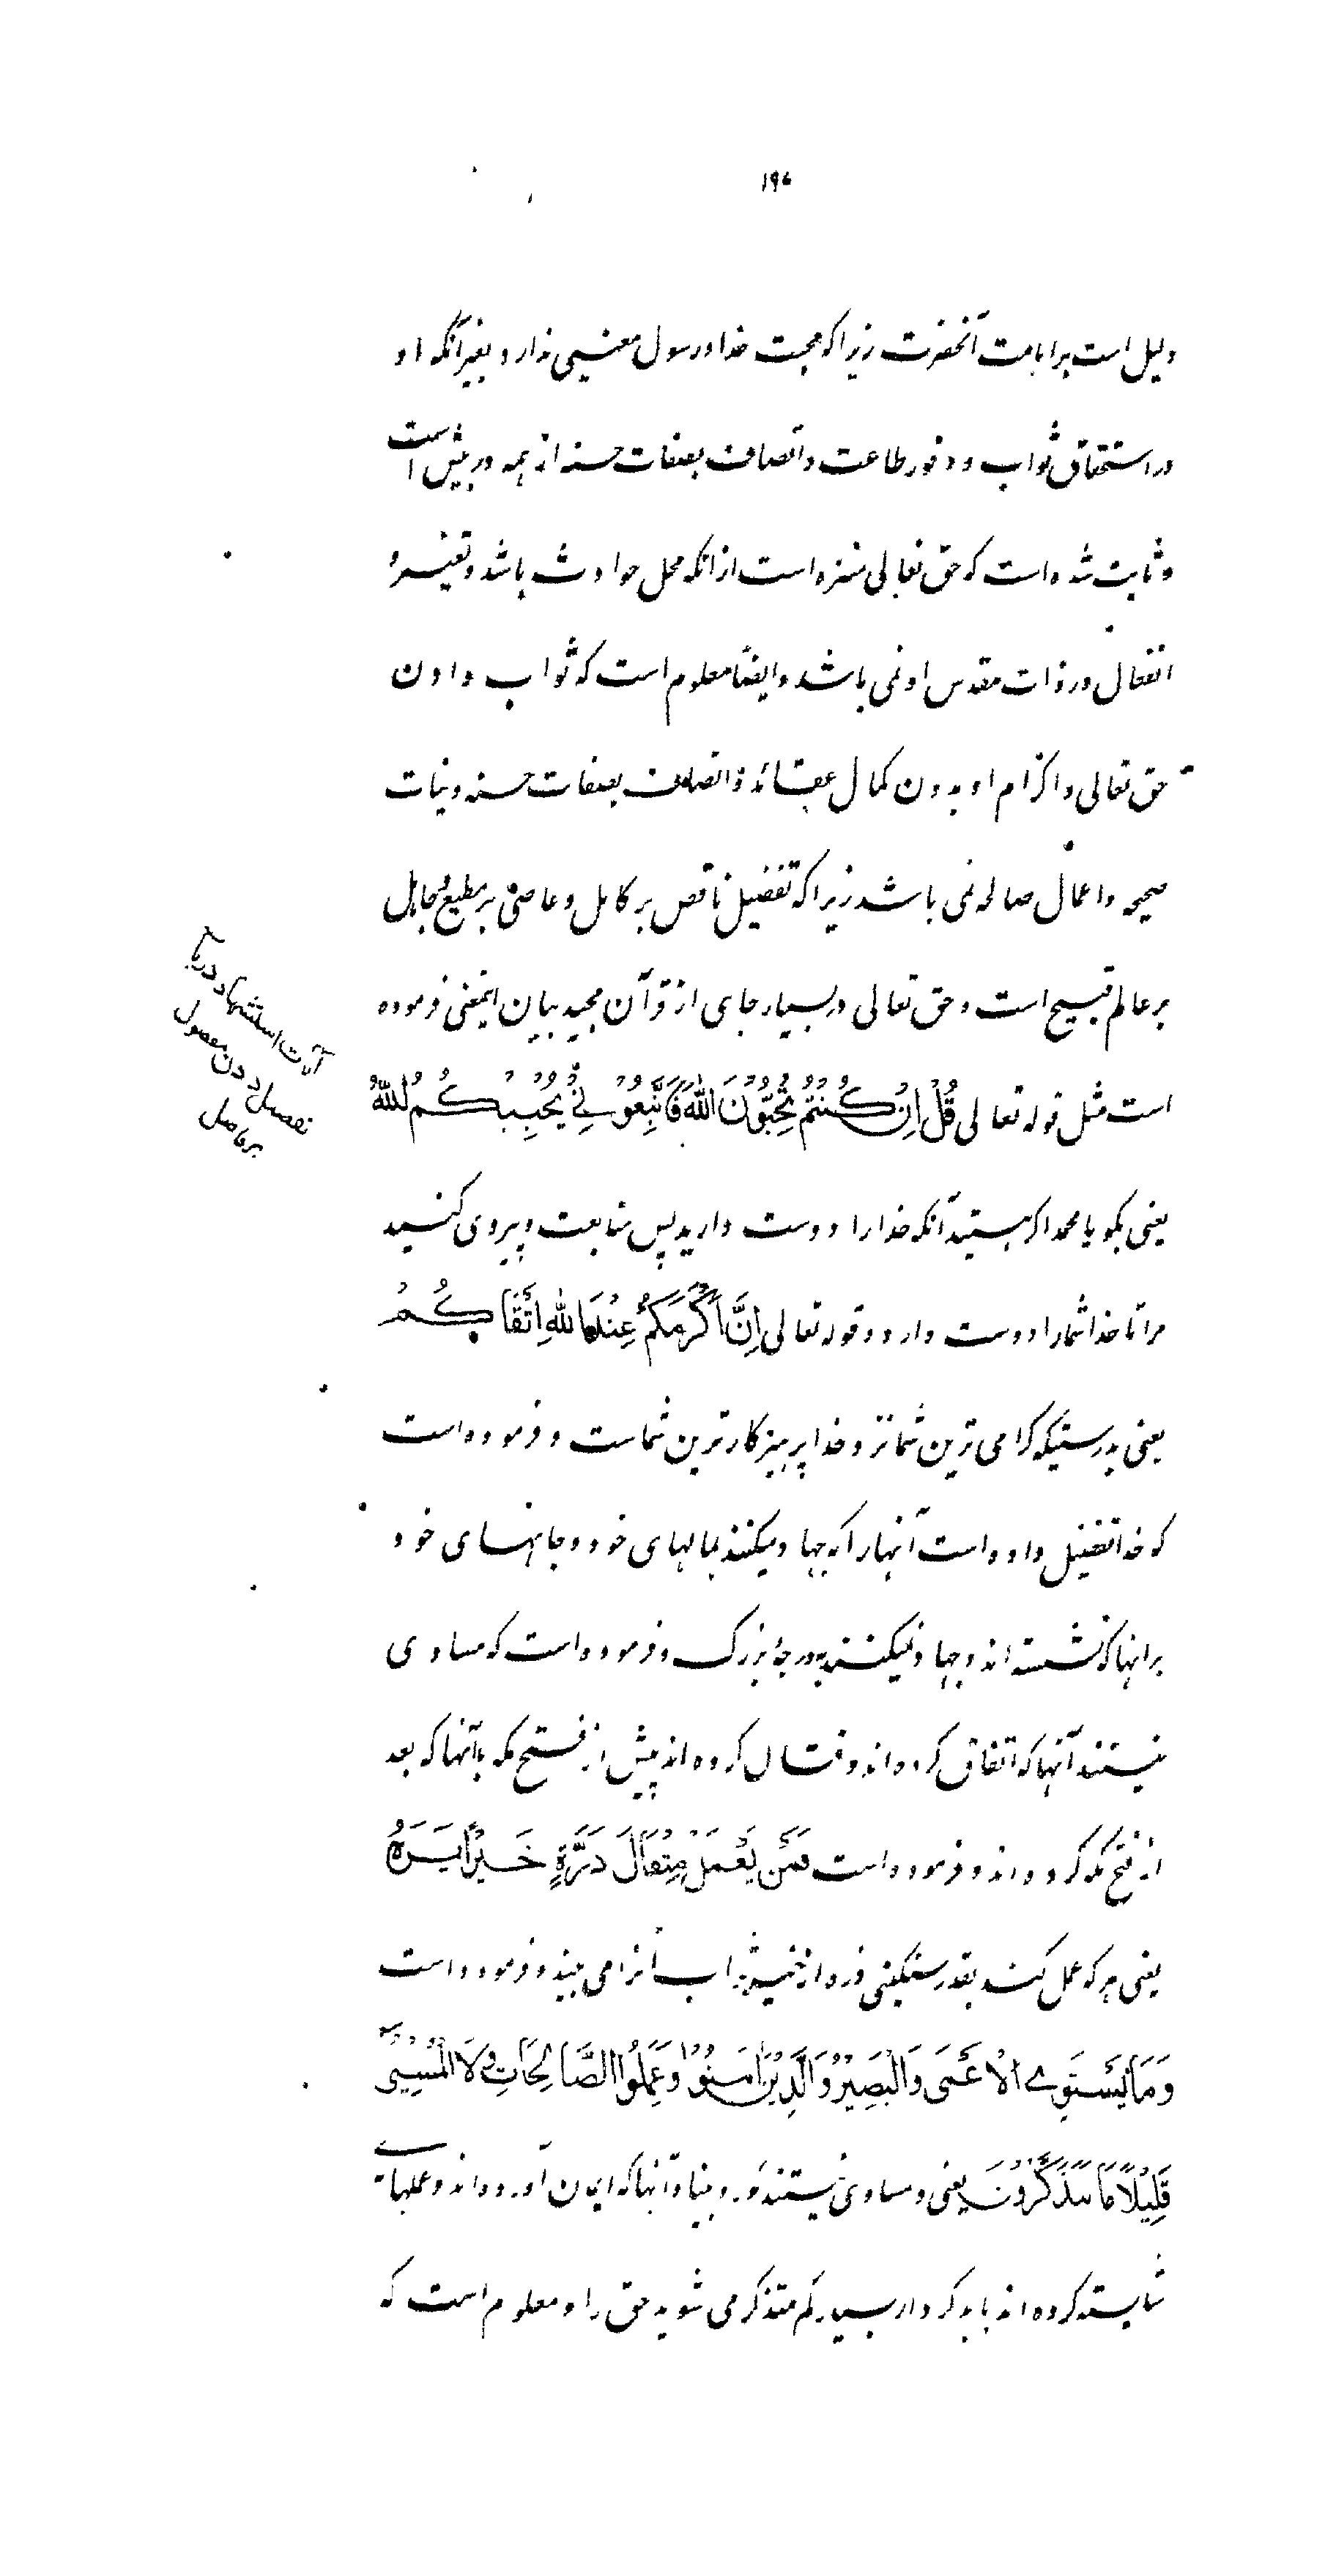 ۱۹۷
دلیل است بر امامت آنحضرت زیرا که محبت خدا و رسول معنیی ندارد بغیر آنکه او
در استحقاق ثواب و وفور طاعت و اتصاف بصفات حسنه از همه در پیش است
و ثابت شده است که حق تعالی منزه است از انکه محل حوادث باشد و تغییر و
انفعال در ذات مقدس او نمی باشد و ایضًا معلوم است که ثواب دادن
حق تعالی و اکرام او بدون کمال عقائد و اتصاف بصفات حسنه و نیات
صحیحه و اعمال صالحه نمی باشد زیرا که تفضیل ناقص بر کامل و عاصی بر مطیع و جاهل
بر عالم قبیح است و حق تعالی در بسیار جای از قرآن مجید بیان اینمعنی فرموده
است مثل قوله تعالی قُلْ اِنْ كُنْتُمْ تُحِبُّوْنَ اللّٰهَ فَاتَّبِعُوْنِیْ یُحْبِبْكُمُ اللّٰهُ
یعنی بگو یا محمد اگر هستید آنکه خدا را دوست دارید پس متابعت و پیروی کنید
مرا تا خدا شما را دوست دارد و قوله تعالی اِنَّ اَكْرَمَكُمْ عِنْدَ اللّٰهِ اَتْقَاكُمْ
یعنی بدرستیکه گرامی ترین شما نزد خدا پرهیزکار ترین شماست و فرموده است
که خدا تفضیل داده است آنها را که جهاد میکنند بمالهای خود و جانهای خود
بر انها که نشسته اند و جهاد نمیکنند بدرجۀ بزرگ و فرموده است که مساوی
نیستند آنها که انفاق کرده اند و قتال کرده اند پیش از فتح مکه باآنها که بعد
از فتح مکه کرده اند و فرموده است فَمَنْ یَعْمَلْ مِثْقَالَ ذَرَّةٍ خَیْرًا یَرَهُ
یعنی هر که عمل کند بقدر سنگینی ذره از خیر ثواب آنرا می بیند و فرموده است
وَمَا یَسْتَوِے الْاَعْمَی وَالْبَصِیْرُ وَالَّذِیْنَ اٰمَنُوْا وَعَمِلُوا الصَّالِحَاتِ وَلَا الْمُسِیْٓءُ
قَلِیْلًا مَا تَتَذَكَّرُوْنَ یعنی و مساوی نیستند کور و بینا و آنها که ایمان آورده اند و عملهاے
شایسته کرده اند با بد کردار بسیار کم متذکر می شوید حق را و معلوم است که
آیات استشهاد در باب
تفضیل دادن مفضول
بر فاضل